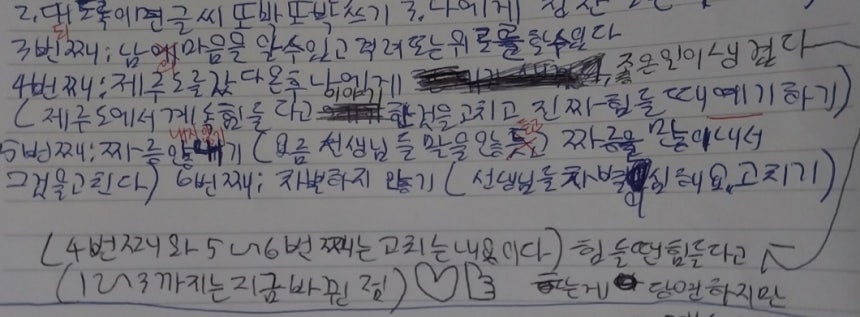 2. 되도록이면 글씨 또박또박 쓰기 3. 나에게
3번째: 남에 마음을 알수있고 격려 또는 위로를 할수있다
4번째: 제주도를 갔다온후 나에게 좋은일이 생겼다
(제주도에서 계속 힘들다고 한것을 고치고 진짜 힘들때 얘기하기)
5번째: 짜증 않내기 (요즘 선생님들 말을 않듣고 짜증을 많이내서
그것을 고친다) 6번째: 차별하지 않기 (선생님들 차별 심해요, 고치기)
(4번째와 5~6번째는 고치는 내용이다) 힘들땐 힘들다고
(1~3까지는 지금 바뀐 점) 하는게 당연하지만